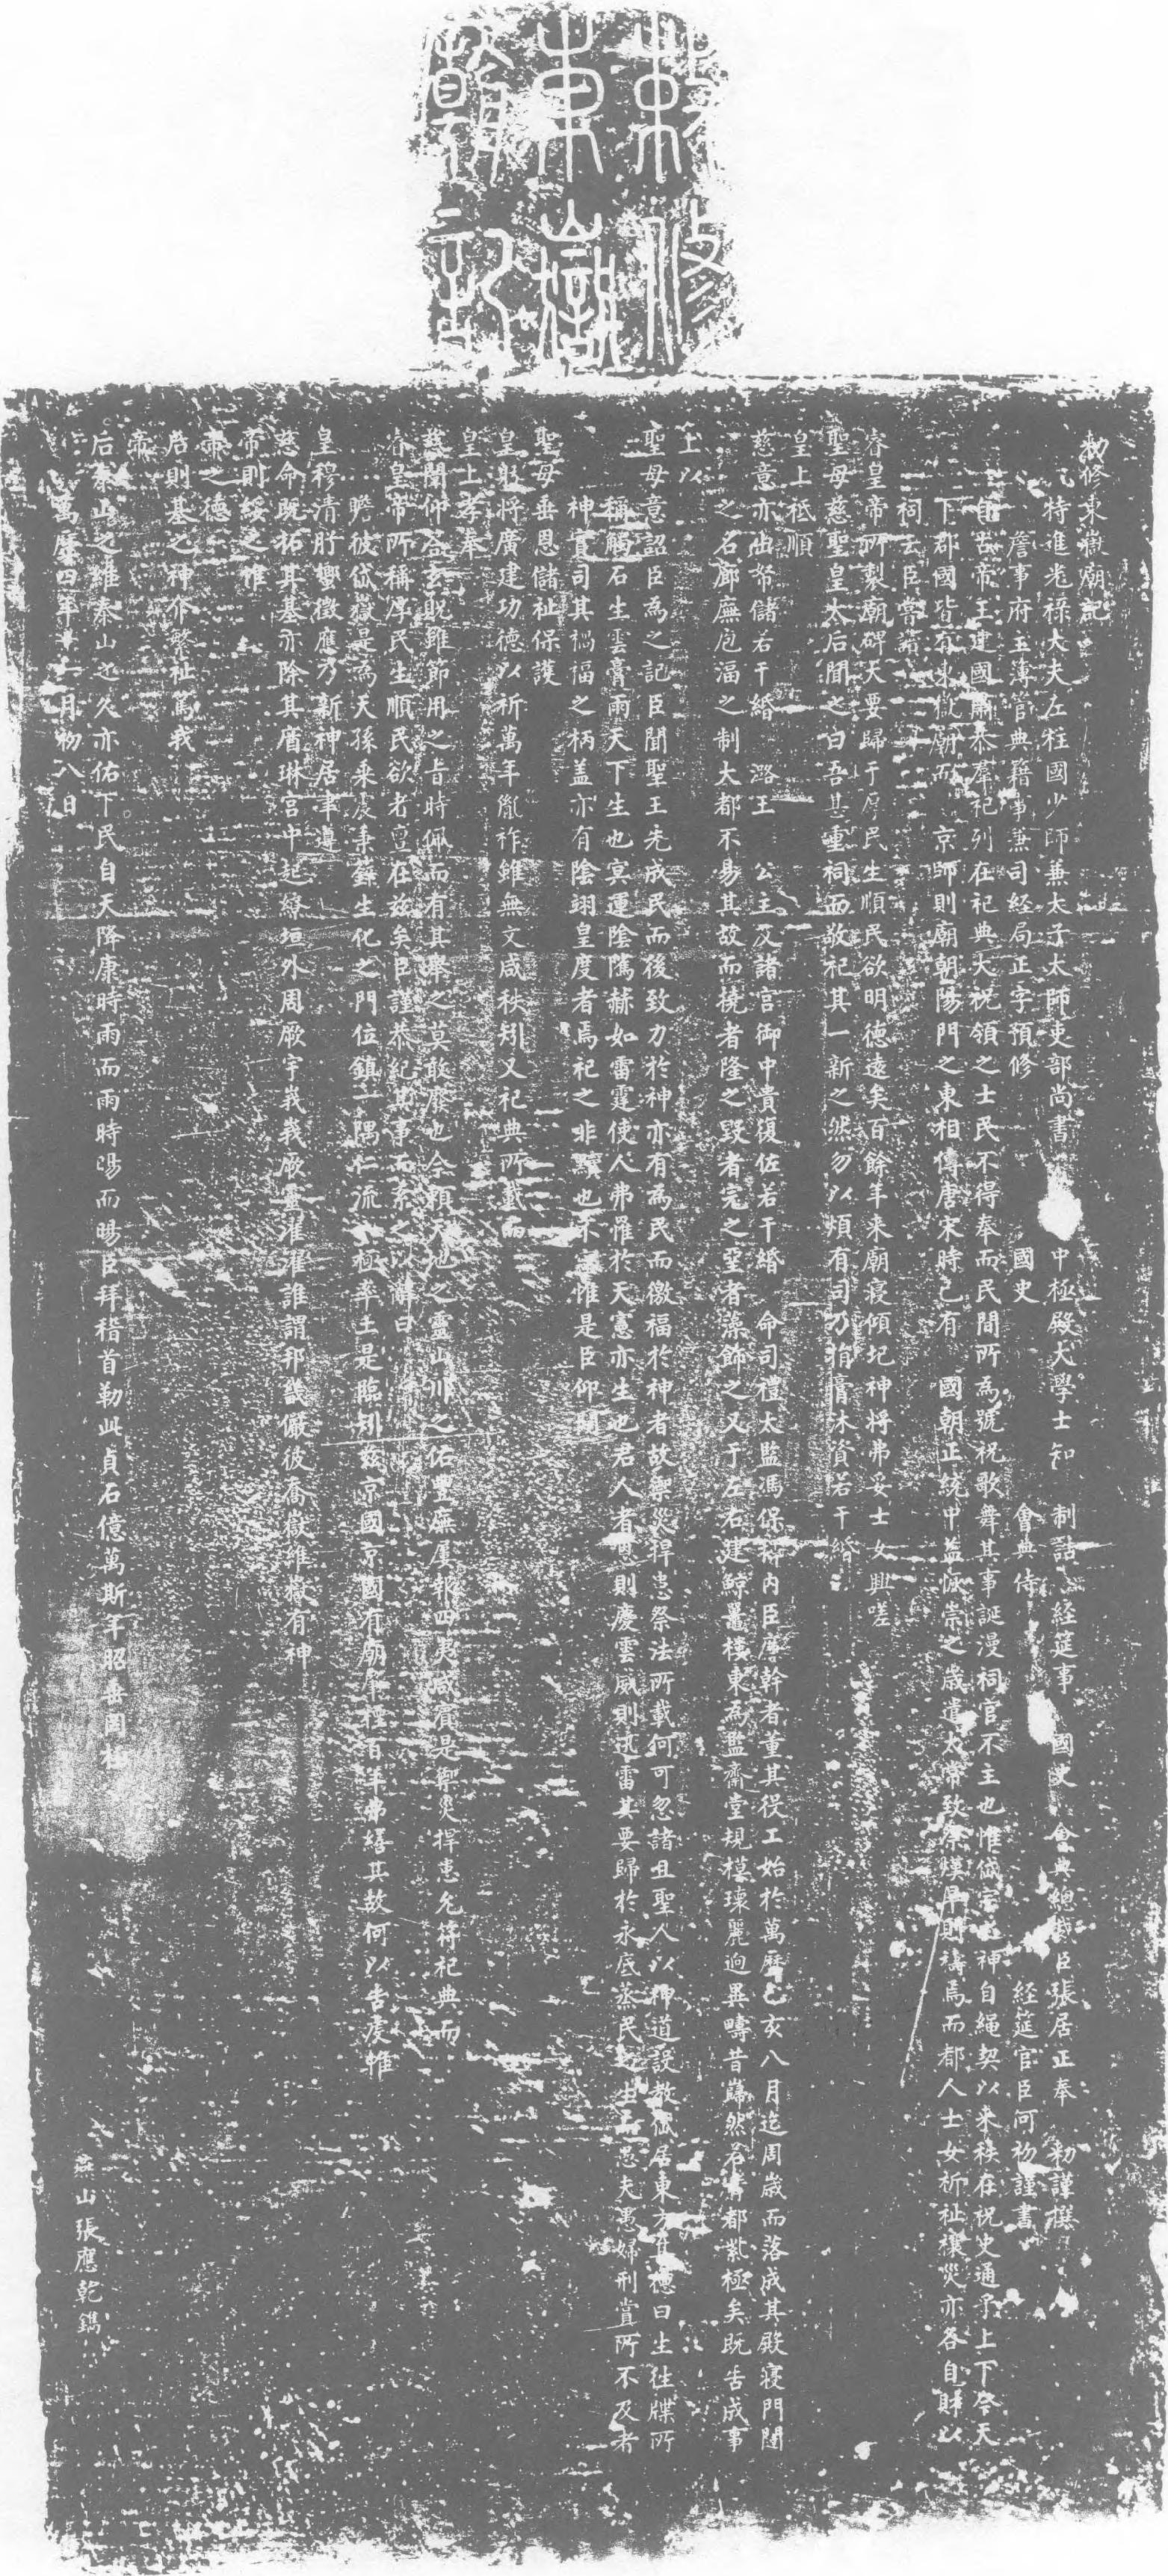 敕修
東嶽
廟記
敕修東嶽廟記
特進光祿大夫左柱國少師兼太子太師吏部尚書 中極殿大學士知 制誥 經筵事 國史 會典總裁臣張居正奉 勅謹撰
詹事府主簿管典籍事兼司經局正字預修 國史 會典侍 經筵官臣何初謹書
自古帝王建國肅恭群祀列在祀典大祝領之士民不得奉而民間所為號祝歌舞其事誕漫祠官不主也惟岱宗之神自繩契以来秩在祝史通乎上下今天
下郡國皆有東嶽廟而 京師則廟朝陽門之東相傳唐宋時已有 國朝正統中益恢崇之歲遣太常致祭熯旱則禱焉而都人士女祈祉禳災亦各自財以
祠云臣嘗讀
睿皇帝所製廟碑大要歸于厚民生順民欲明德遠矣百餘年来廟寢傾圮神將弗妥士女興嗟
聖母慈聖皇太后聞之曰吾甚重祠而敬祀其一新之然勿以煩有司乃捐膏沐資若干緡
皇上祗順
慈意亦出帑儲若干緡 潞王 公主及諸宫御中貴復佐若干緡 命司禮太監馮保 內臣 幹者董其役工始於萬曆乙亥八月迄周歲而落成其殿寢門闥
之石廊廡庖湢之制大都不易其故而撓者隆之毀者完之堊者藻飾之又于左右建鯨鼉樓東為監齋堂規模瓌麗迥異疇昔巋然若清都紫極矣既告成事
上以
聖母意詔臣為之記臣聞聖王先成民而後致力於神亦有為民而徼福於神者故禦災捍患祭法所載何可忽諸且聖人以神道設教岱居東方其德曰生往牒所
稱觸石生雲膏雨天下生也冥運陰隲赫如雷霆使人弗罹於天憲亦生也君人者恩則慶雲威則迅雷其要歸於永底蒸民之生而愚夫愚婦刑賞所不及者
神實司其禍福之柄盖亦有陰翊皇度者焉祀之非黷也 惟是臣仰
聖母垂恩儲祉保護
皇躬将廣建功德以祈萬年胤祚雖無文咸秩矧又祀典所載而
皇上孝奉
慈闈仰 貺雖節用之旨時佩而有其舉之莫敢廢也今賴天地之靈山川之佑豐廡屢報四夷咸賓是禦災捍患允符祀典而
睿皇帝所稱厚民生順民欲者亶在茲矣臣謹恭紀其事而系之以辭曰
瞻彼岱嶽是為天孫乘震秉籙生化之門位鎮一隅仁流八極率土是臨矧茲京國京國有廟 百年弗繕其故何以告虔惟
皇穆清肸蠁徵應乃新神居聿遵
慈命既拓其基亦除其廇琳宫中起繚垣外周厥宇峩峩厥靈濯濯誰謂邦畿儼彼喬嶽維嶽有神
帝則綏之惟
帝之德
后則基之神介繁祉篤我
帝
后泰山之維泰山之久亦佑下民自天降康時雨而雨時暘而暘臣拜稽首勒此貞石億萬斯年昭垂罔極
萬曆四年十一月初八日
燕山張應乾鐫